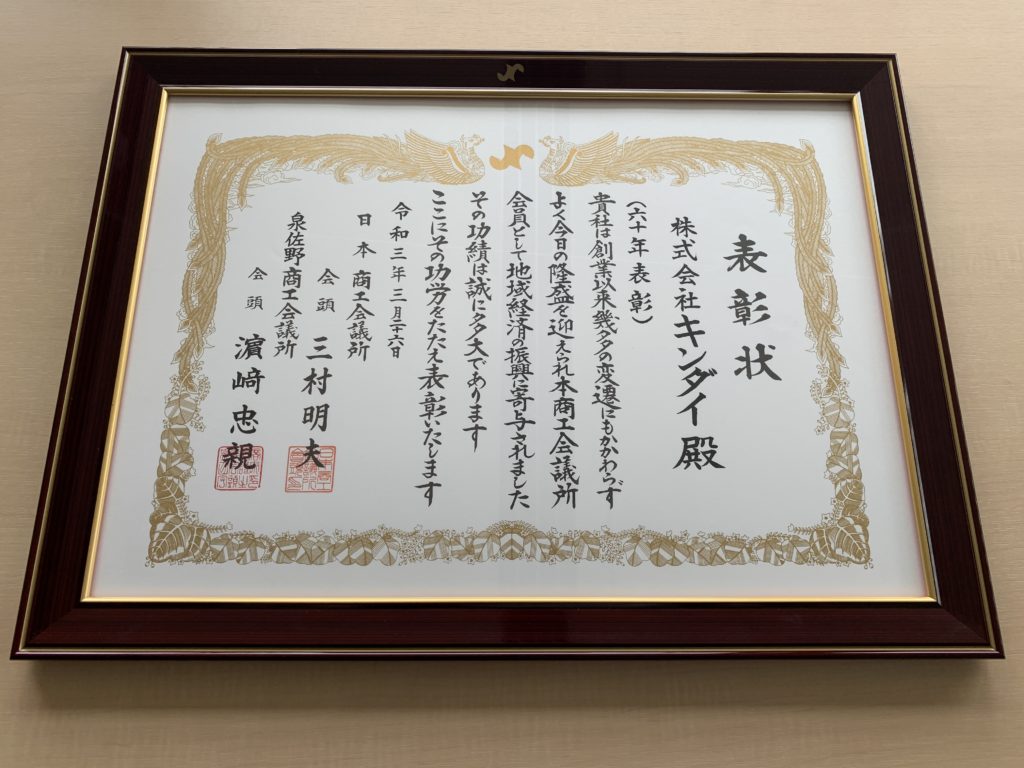 表彰状
株式会社キンダイ殿
(六十年表彰)
貴社は創業以来幾多の変遷にもかかわらず
よく今日の隆盛を迎えられ本商工会議所
会員として地域経済の振興に寄与されました
その功績は誠に多大であります
ここにその功労をたたえ表彰いたします
令和三年三月二十六日
日本商工会議所
会頭 三村明夫
泉佐野商工会議所
会頭 濵﨑忠親